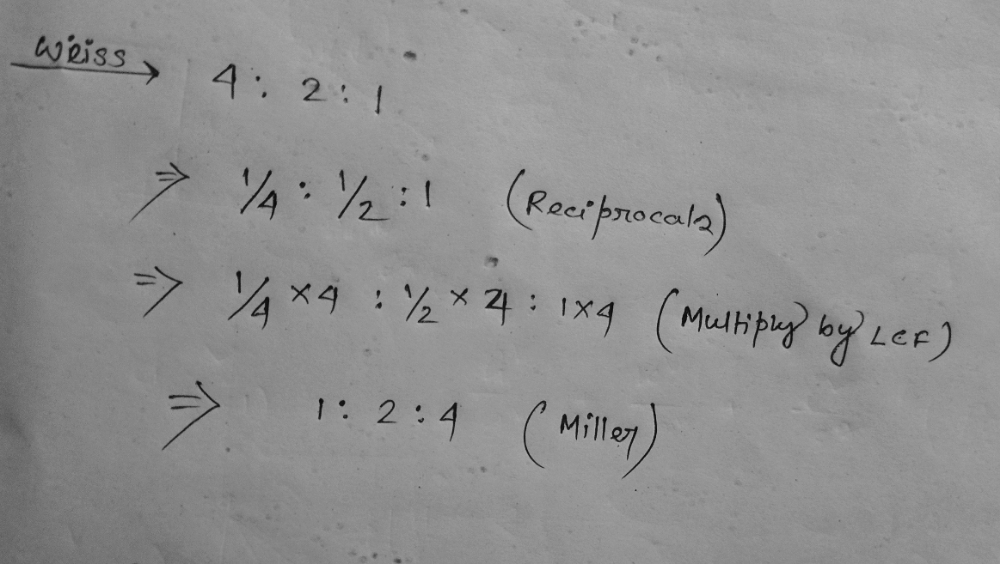 Weiss → 4 : 2 : 1
⇒ 1/4 : 1/2 : 1 (Reciprocals)
⇒ 1/4 × 4 : 1/2 × 4 : 1 × 4 (Multiply by LCF)
⇒ 1 : 2 : 4 (Miller)